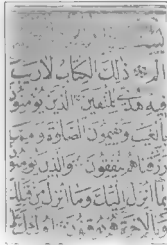 الم ذلك الكتاب لا ريب
فيه هدى للمتقين الذين يؤمنون
بالغيب ويقيمون الصلوة ومما
رزقناهم ينفقون والذين يؤمنون
بما انزل اليك وما انزل من قبلك
وبالآخرة هم يوقنون اولئك